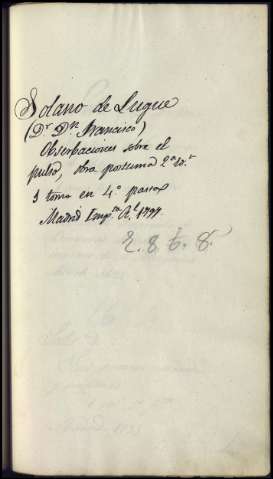 Solano de Luque
(Dr. Dn. Francisco)
Observaciones sobre el
pulso, obra postuma 2ª ed.n
1 tomo en 4.º pasta
Madrid Imp.ta Rl. 1797
E. 8 t. 8.